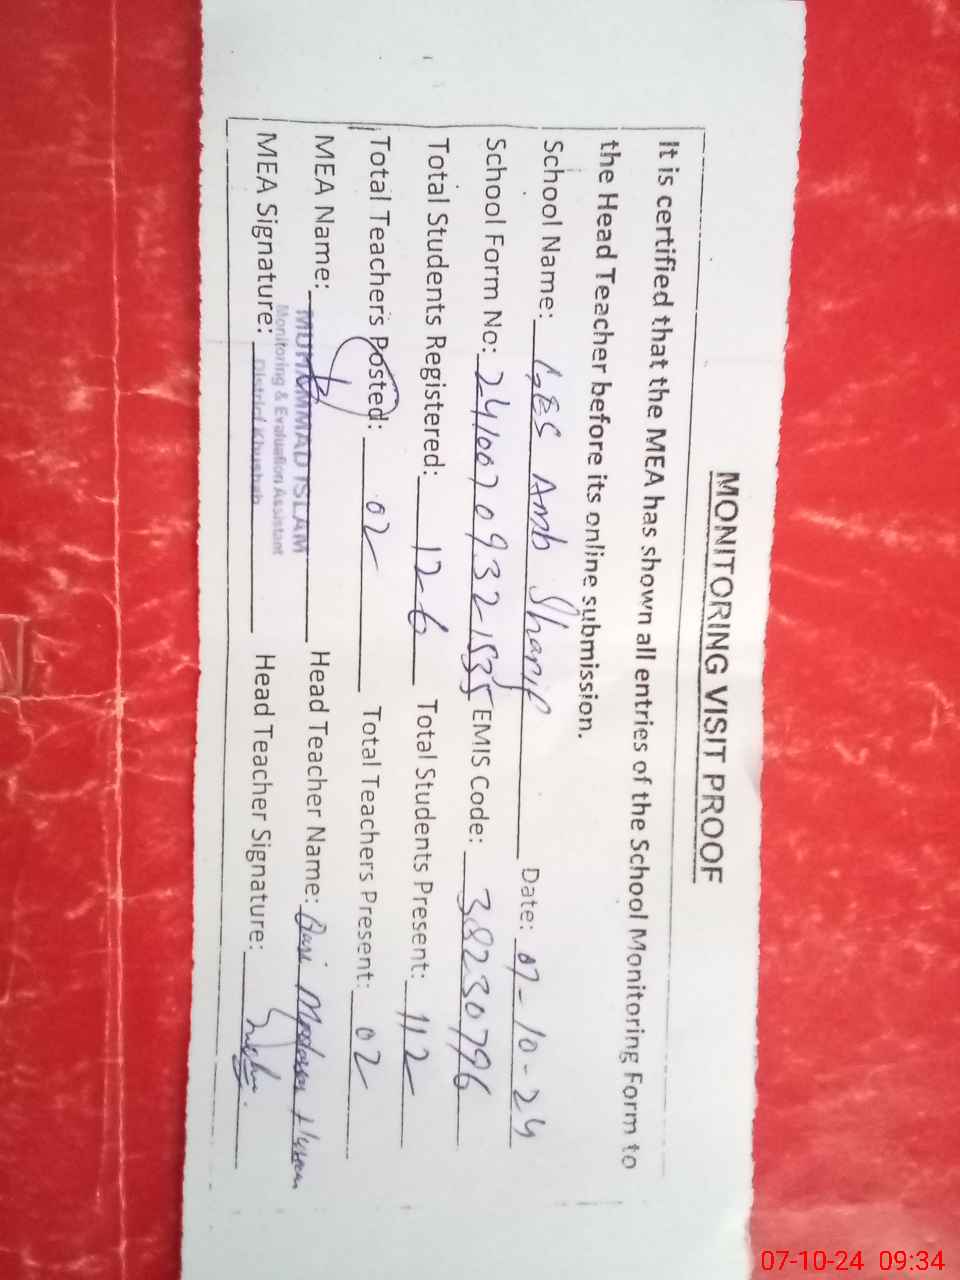 MONITORING VISIT PROOF
It is certified that the MEA has shown all entries of the School Monitoring Form to
the Head Teacher before its online submission.
School Name: GES Amb Sharif Date: 07-10-24
School Form No: 241007 0932 1535 EMIS Code: 38230796
Total Students Registered: 126 Total Students Present: 112
Total Teachers Posted: 02 Total Teachers Present: 02
MEA Name: MUHAMMAD ISLAM Head Teacher Name: Qazi
Monitoring & Evaluation Assistant
MEA Signature: District Khushab Head Teacher Signature:
07-10-24 09:34